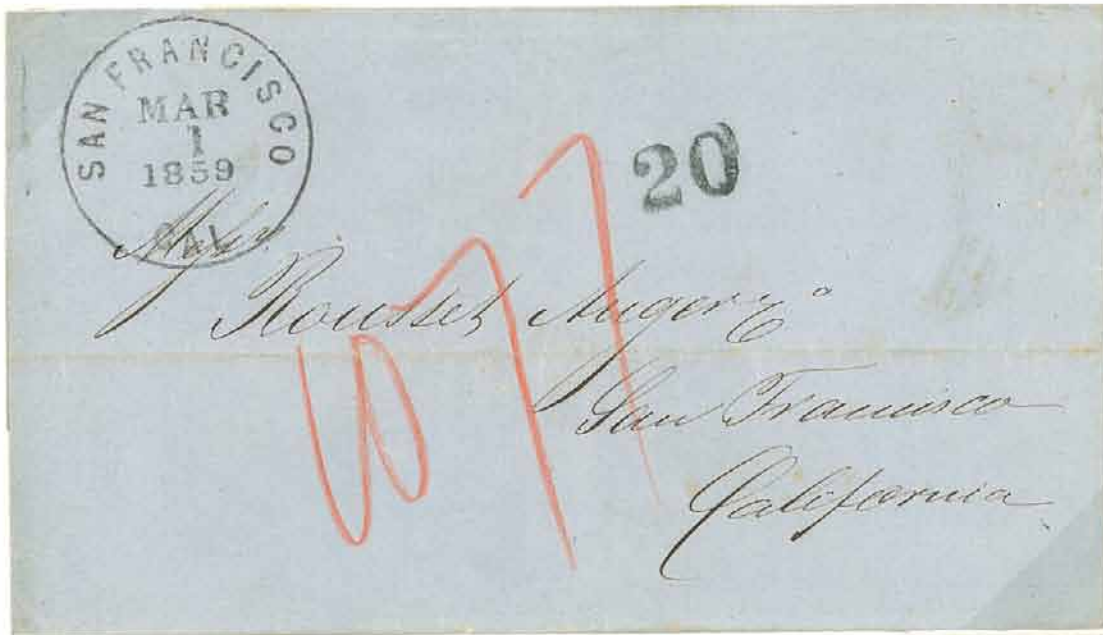 SAN FRANCISCO
MAR
1
1859
CAL
20
Messrs.
Rousset Auger & Co
San Francisco
California